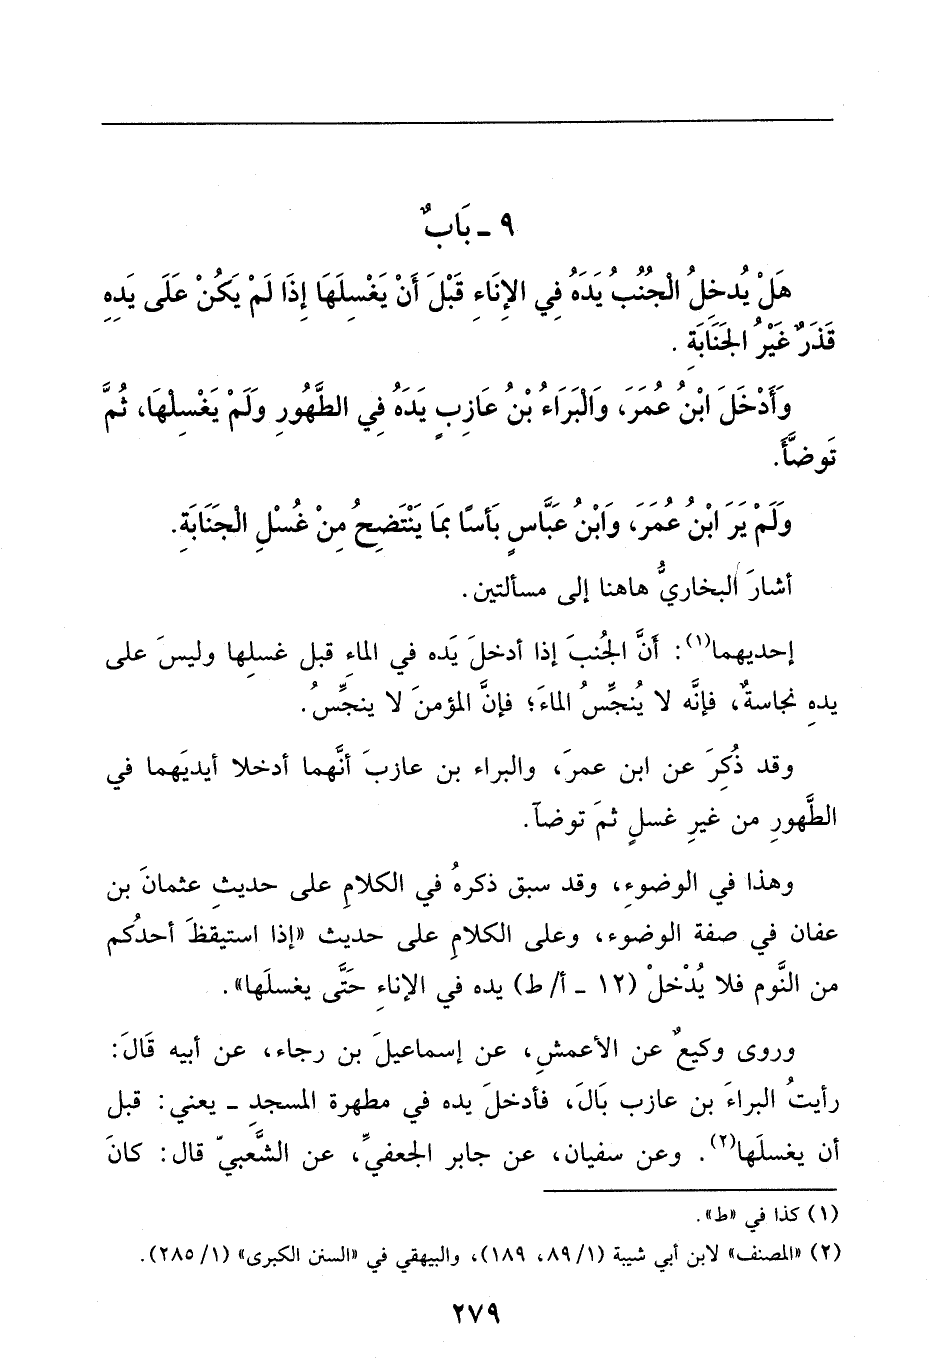 ٩ ـ بَابٌ
هَلْ يُدخِلُ الْجُنُبُ يَدَهُ فِي الإنَاءِ قَبْلَ أَنْ يَغْسِلَهَا إِذَا لَمْ يَكُنْ عَلَى يَدِهِ
قَذَرٌ غَيْرُ الجَنَابَةِ .
وَأَدْخَلَ ابْنُ عُمَرَ، وَالْبَرَاءُ بْنُ عَازِبٍ يَدَهُ فِي الطَّهُورِ وَلَمْ يَغْسِلْهَا، ثُمَّ
تَوضَّأَ.
وَلَمْ يَرَ ابْنُ عُمَرَ، وَابْنُ عَبَّاسٍ بَأسًا بمَا يَنْتَضِحُ مِنْ غُسْلِ الْجَنَابَةِ.
أشارَ البخاريُّ هاهنا إلى مسألتين.
إحديهما(١): أَنَّ الجُنبَ إذا أدخلَ يَده في الماءِ قبل غسلِها وليسَ على
يدِهِ نجاسةٌ، فإنَّه لا يُنجِّسُ الماءَ؛ فإنَّ المؤمنَ لا ينجِّسُ.
وقد ذُكِرَ عن ابن عمرَ، والبراء بن عازبَ أنَّهما أدخلا أيديَهما في
الطَّهورِ من غيرِ غسلٍ ثمَ توضآ.
وهذا في الوضوءِ، وقد سبق ذكرهُ في الكلامِ على حديثِ عثمانَ بن
عفان في صفة الوضوء، وعلى الكلامِ على حديث «إذا استيقظَ أحدُكم
من النَّوم فلا يُدْخلْ (١٢ ـ أ/ ط) يده في الإناءِ حَتَّى يغسلَها».
وروى وكيعٌ عن الأعمشِ، عن إسماعيلَ بن رجاء، عن أبيه قَالَ:
رأيتُ البراءَ بن عازب بَالَ، فأدخلَ يده في مطهرة المسجدِ ـ يعني: قبل
أن يغسلَها(٢). وعن سفيان، عن جابر الجعفيِّ، عن الشَّعبيّ قال: كانَ
(١) كذا في «ط».
(٢) «المصنف» لابن أبي شيبة (١/ ٨٩، ١٨٩)، والبيهقي في «السنن الكبرى» (١/ ٢٨٥).
٢٧٩